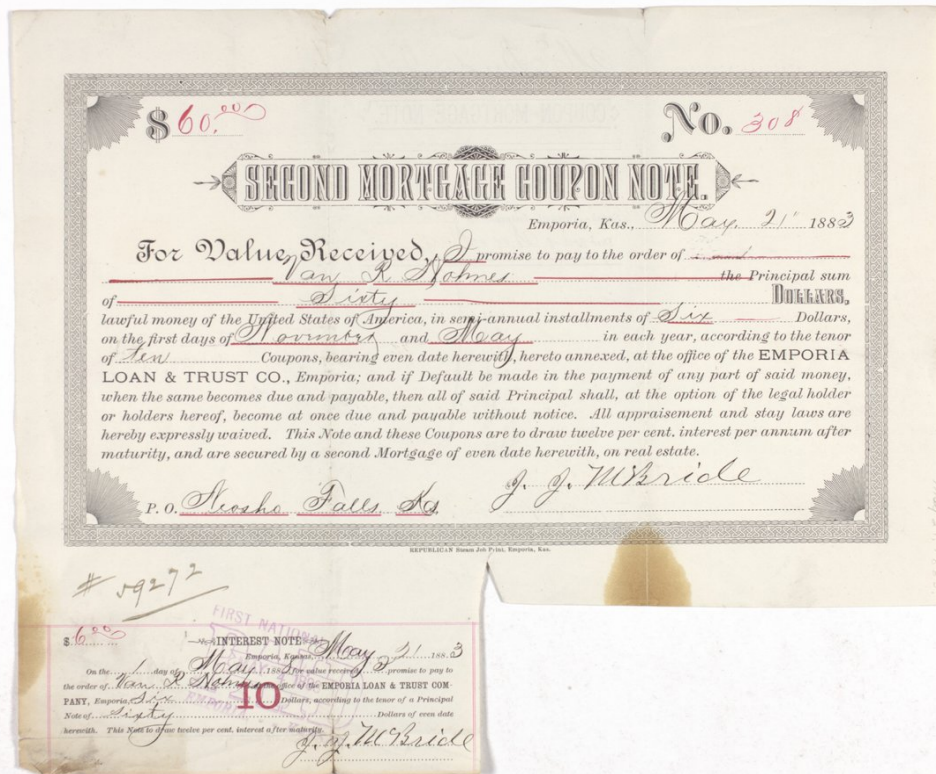 $ 60.00 No. 308
SECOND MORTGAGE COUPON NOTE.
Emporia, Kas., May. 21 1883
For Value Received, I promise to pay to the order of
Van R Holmes the Principal sum
of Sixty DOLLARS,
lawful money of the United States of America, in semi-annual installments of Six Dollars,
on the first days of November and May in each year, according to the tenor
of ten Coupons, bearing even date herewith, hereto annexed, at the office of the EMPORIA
LOAN & TRUST CO., Emporia; and if Default be made in the payment of any part of said money,
when the same becomes due and payable, then all of said Principal shall, at the option of the legal holder
or holders hereof, become at once due and payable without notice. All appraisement and stay laws are
hereby expressly waived. This Note and these Coupons are to draw twelve per cent. interest per annum after
maturity, and are secured by a second Mortgage of even date herewith, on real estate.
J. J. McBride
P. O. Neosho Falls Ks.
REPUBLICAN Steam Job Print, Emporia, Kas.
# 59272
FIRST NATIONAL
$ 6.00 INTEREST NOTE
Emporia, Kansas, May 21 1883
On the 1 day of May 188 for value received I promise to pay to
the order of Van R Holmes office of the EMPORIA LOAN & TRUST COM-
PANY, Emporia, Six 10 Dollars, according to the tenor of a Principal
Note of Sixty Dollars of even date
herewith. This Note to draw twelve per cent. interest after maturity.
J. J. McBride